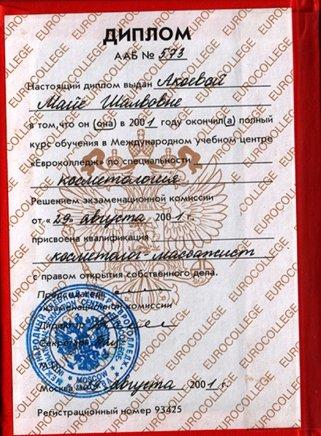 ДИПЛОМ
ААБ № 573
Настоящий диплом выдан Акоевой
Майе Шалвовне
в том,что он (она) в 2001 году окончил(а) полный
курс обучения в Международном учебном центре
«Евроколледж» по специальности
косметология
Решением экзаменационной комиссии
от «29» августа 2001 г.
присвоена квалификация
косметолог-массажист
с правом открытия собственного дела.
Председатель
экзаменационной комиссии
Директор
Секретарь
Москва августа 2001 г.
Регистрационный номер 93425
EUROCOLLEGE
MOSCOW